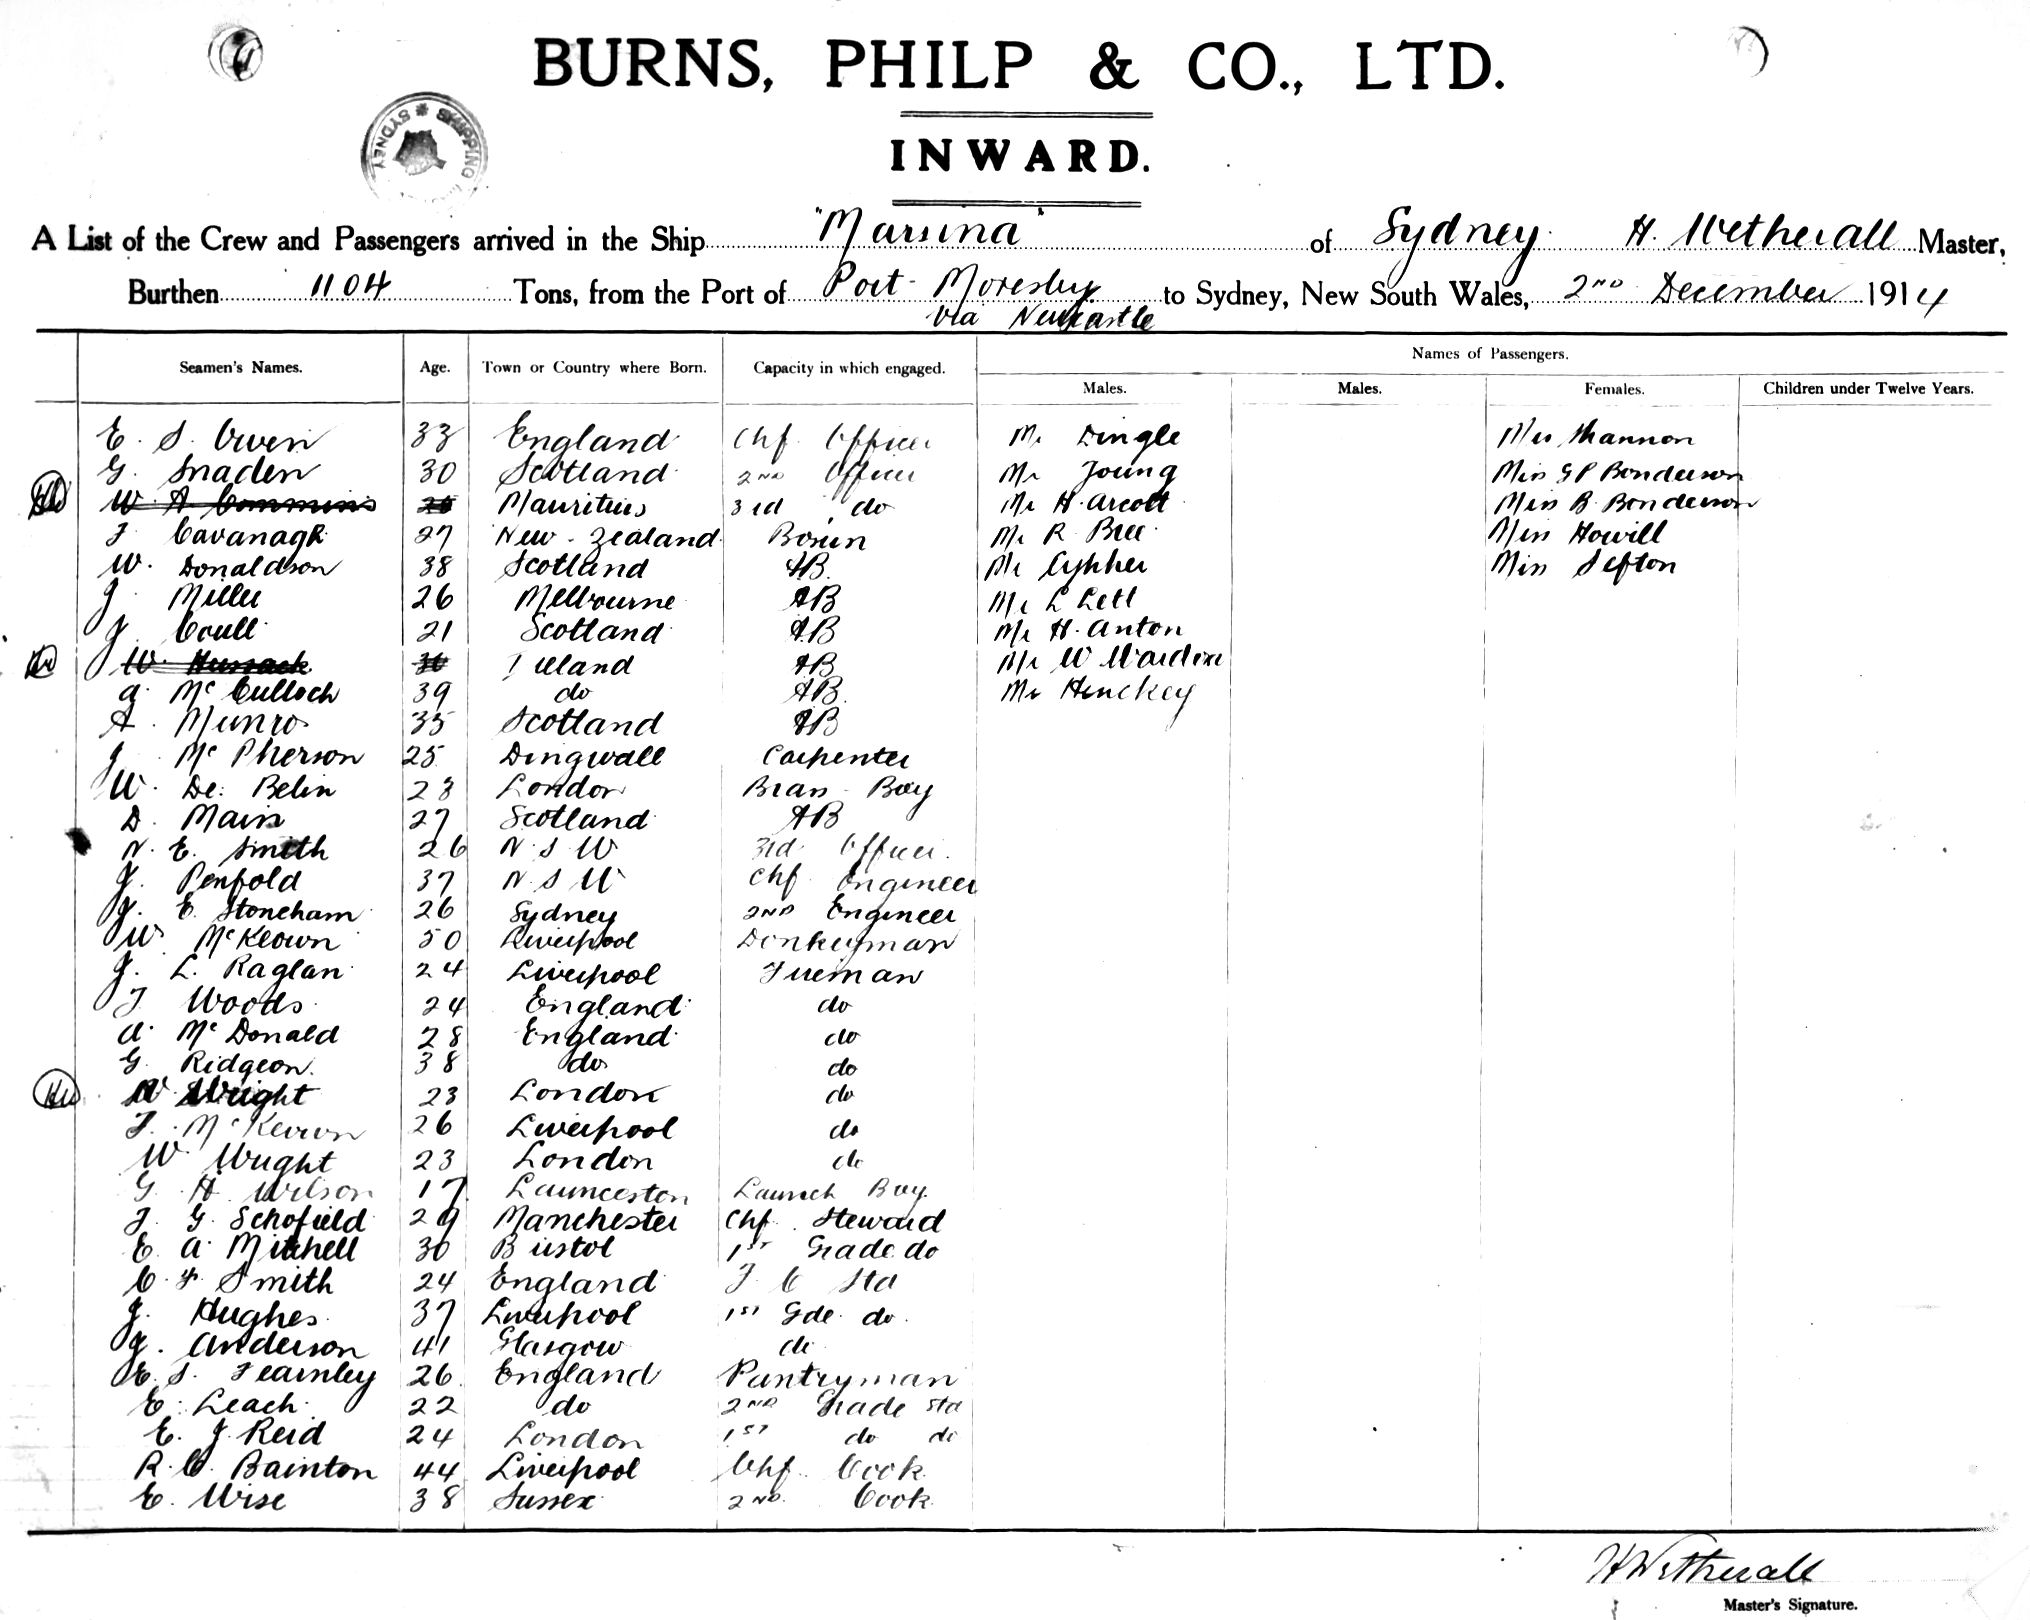 BURNS, PHILP & CO., LTD.
SHIPPING
SYDNEY
INWARD.
A List of the Crew and Passengers arrived in the Ship "Marsina" of Sydney H. Wetherall Master,
Burthen 1104 Tons, from the Port of Port Moresby to Sydney, New South Wales, 2ND December 1914
via Newcastle
Names of Passengers.
Seamen's Names. Age. Town or Country where Born. Capacity in which engaged. Males. Males. Females. Children under Twelve Years.
E. S. Owen 33 England Chf Officer Mr Dingle Mrs Shannon
G. Snaden 30 Scotland 2ND Officer Mr Young Miss G P Bonderson
W. A. Commins Mauritius 3rd do Mr H. Arcott Miss B. Bonderson
J Cavanagh 27 New-Zealand Bosun Mr R Bree Miss Howill
W. Donaldson 38 Scotland AB. Mr Miss Sefton
J. Miller 26 Melbourne AB Mr L Lett
J. Coull 21 Scotland AB Mr H. Anton
W. Hussack Ireland AB Mr W
A. McCulloch 39 do AB. Mr Henckey
A. Munro 35 Scotland AB
J McPherson 25 Dingwall Carpenter
W. De. Belin 23 London Brass-Boy
D. Main 27 Scotland AB
N. E. Smith 26 N S W 3rd Officer.
J. Penfold 37 N S W Chf Engineer
J. E. Stoneham 26 Sydney 2ND Engineer
W McKeown 50 Liverpool Donkeyman
J. L. Raglan 24 Liverpool Fireman
J Woods 24 England do
A. McDonald 28 England do
G. Ridgeon. 38 do do
W Wright 23 London do
J. McKeown 26 Liverpool do
W Wright 23 London do
G. H. Wilson 17 Launceston Launch Boy.
J. G. Schofield 29 Manchester Chf. Steward
E. A. Mitchell 30 Bristol 1st Grade do
C. F. Smith 24 England F C Std
J. Hughes 37 Liverpool 1st Gde. do.
J. Anderson 41 Glasgow do
E. S. Fearnley 26 England Pantryman
E. Leach 22 do 2ND Grade Std
E. J. Reid 24 London 1ST do do
R. C. Bainton 44 Liverpool Chf. Cook
E. Wise 38 Sussex 2ND. Cook
H Wetherall
Master's Signature.